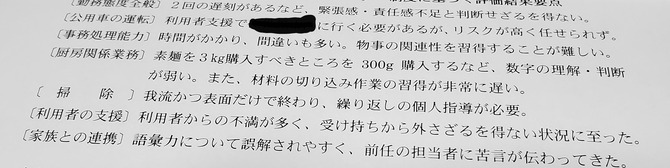 に基づく評価結果要点
〔勤務態度全般〕２回の遅刻があるなど、緊張感・責任感不足と判断せざるを得ない。
〔公用車の運転〕利用者支援で に行く必要があるが、リスクが高く任せられず。
〔事務処理能力〕時間がかかり、間違いも多い。物事の関連性を習得することが難しい。
〔厨房関係業務〕素麺を３kg購入すべきところを 300g 購入するなど、数字の理解・判断
が弱い。また、材料の切り込み作業の習得が非常に遅い。
〔　掃　　除　〕我流かつ表面だけで終わり、繰り返しの個人指導が必要。
〔利用者の支援〕利用者からの不満が多く、受け持ちから外さざるを得ない状況に至った。
〔家族との連携〕語彙力について誤解されやすく、前任の担当者に苦言が伝わってきた。